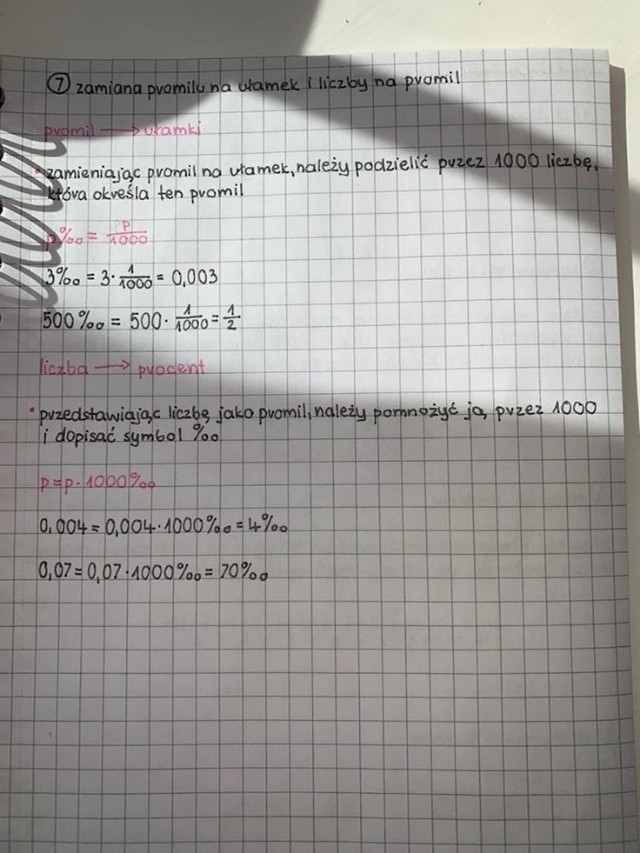 ⑦ zamiana promilu na ułamek i liczby na promil
promil → ułamki
• zamieniając promil na ułamek, należy podzielić przez 1000 liczbę,
która określa ten promil
p‰ = p/1000
3‰ = 3 · 1/1000 = 0,003
500‰ = 500 · 1/1000 = 1/2
liczba → procent
• przedstawiając liczbę jako promil, należy pomnożyć ją, przez 1000
i dopisać symbol ‰
p = p · 1000‰
0,004 = 0,004 · 1000‰ = 4‰
0,07 = 0,07 · 1000‰ = 70‰